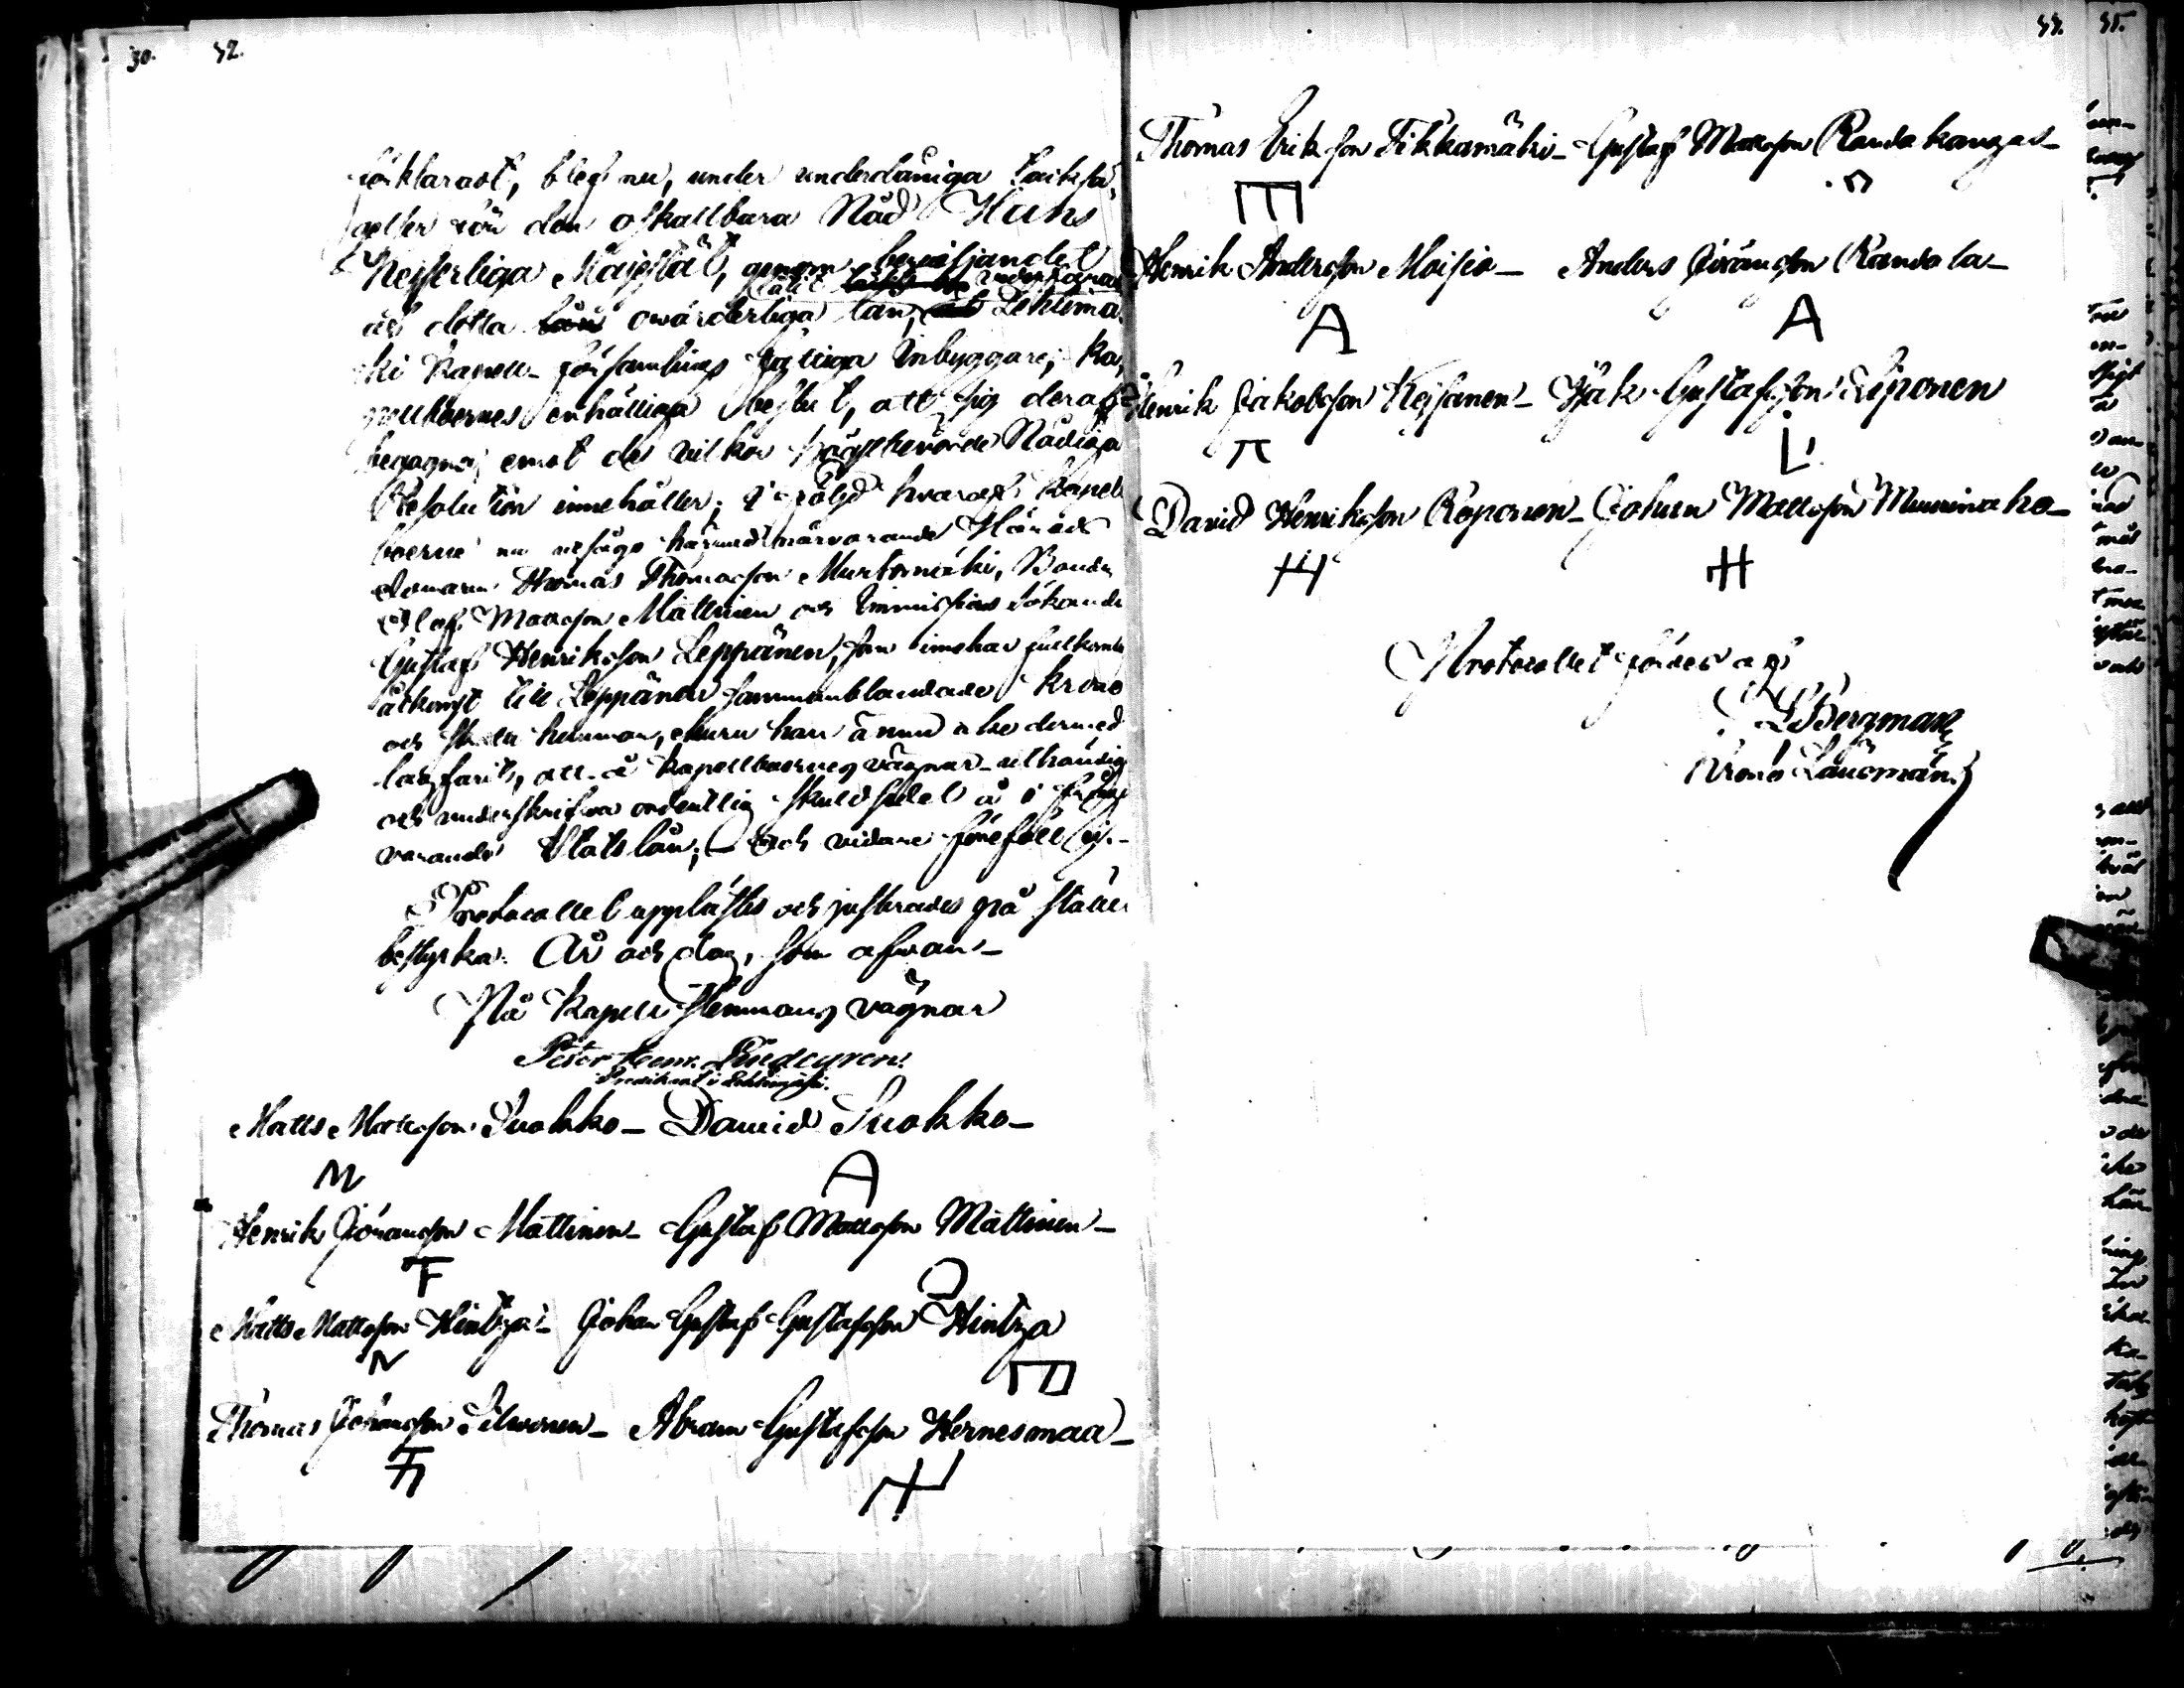 30. 42.
förklarast, blef nu, under underdåniga tacksä-
gelser för den oskattbara Nåd Hans
Kejserliga Majestät, genom beviljandet
låtit undfägnas
af detta ovärderliga lån, Lehtimä-
ki Kapell-församlings fattiga Inbyggare, Ka-
pellboernes enhälliga beslut, att sig deraf
begagna, emot de vilkor högstberörde Nådiga
Resolution innehåller; i följd hvaraf Kapell
boerne nu utsågo härmed närvarande Härads
domaren Thomas Thomasson Murtomäki, Bonden
Olof Mattsson Mattinen och Immissions Sökande
Gustaf Henriksson Leppänen, som innehar fullkomlig
åtkomst till Leppänen sammanblandade Krono
och Skatte hemman, churu han ännu icke dermed
lagfarits, att å Kapellboernes vägnar uthändiga
och underskrifva ordentlig skuldsedel å i fråga
varande Statslån; Och vidare föreföll ej.-
Protocollet upplästes och justerades på stället
bestyrka. År och dag, som ofvan-
På Kapell Hemmans vägnar
Peter Henr. Lindegren.
Predikant i Lehtimäki.
Matts Mattsson Suokko- David Suokko-
M A
Henrik Johansson Mattinen- Gustaf Mattsson Mattinen-
F
Matts Mattsson Hintza- Johan Gustaf Gustafsson Hintza
N
Thomas Johansson Silvonen- Abram Gustafsson Hernesmaa-
44. 45.
Thomas Eriksson Tikkamäki- Gustaf Mattsson Randakangas-
Henrik Andersson Moisio- Anders Göransson Randala-
A A
Henrik Jakobsson Kejsanen- Isak Gustafsson Liponen
David Henriksson Raponen- Johan Mattsson Muurinaho-
H H
Protocollet fördes af
L Bergman
Krono Länsman